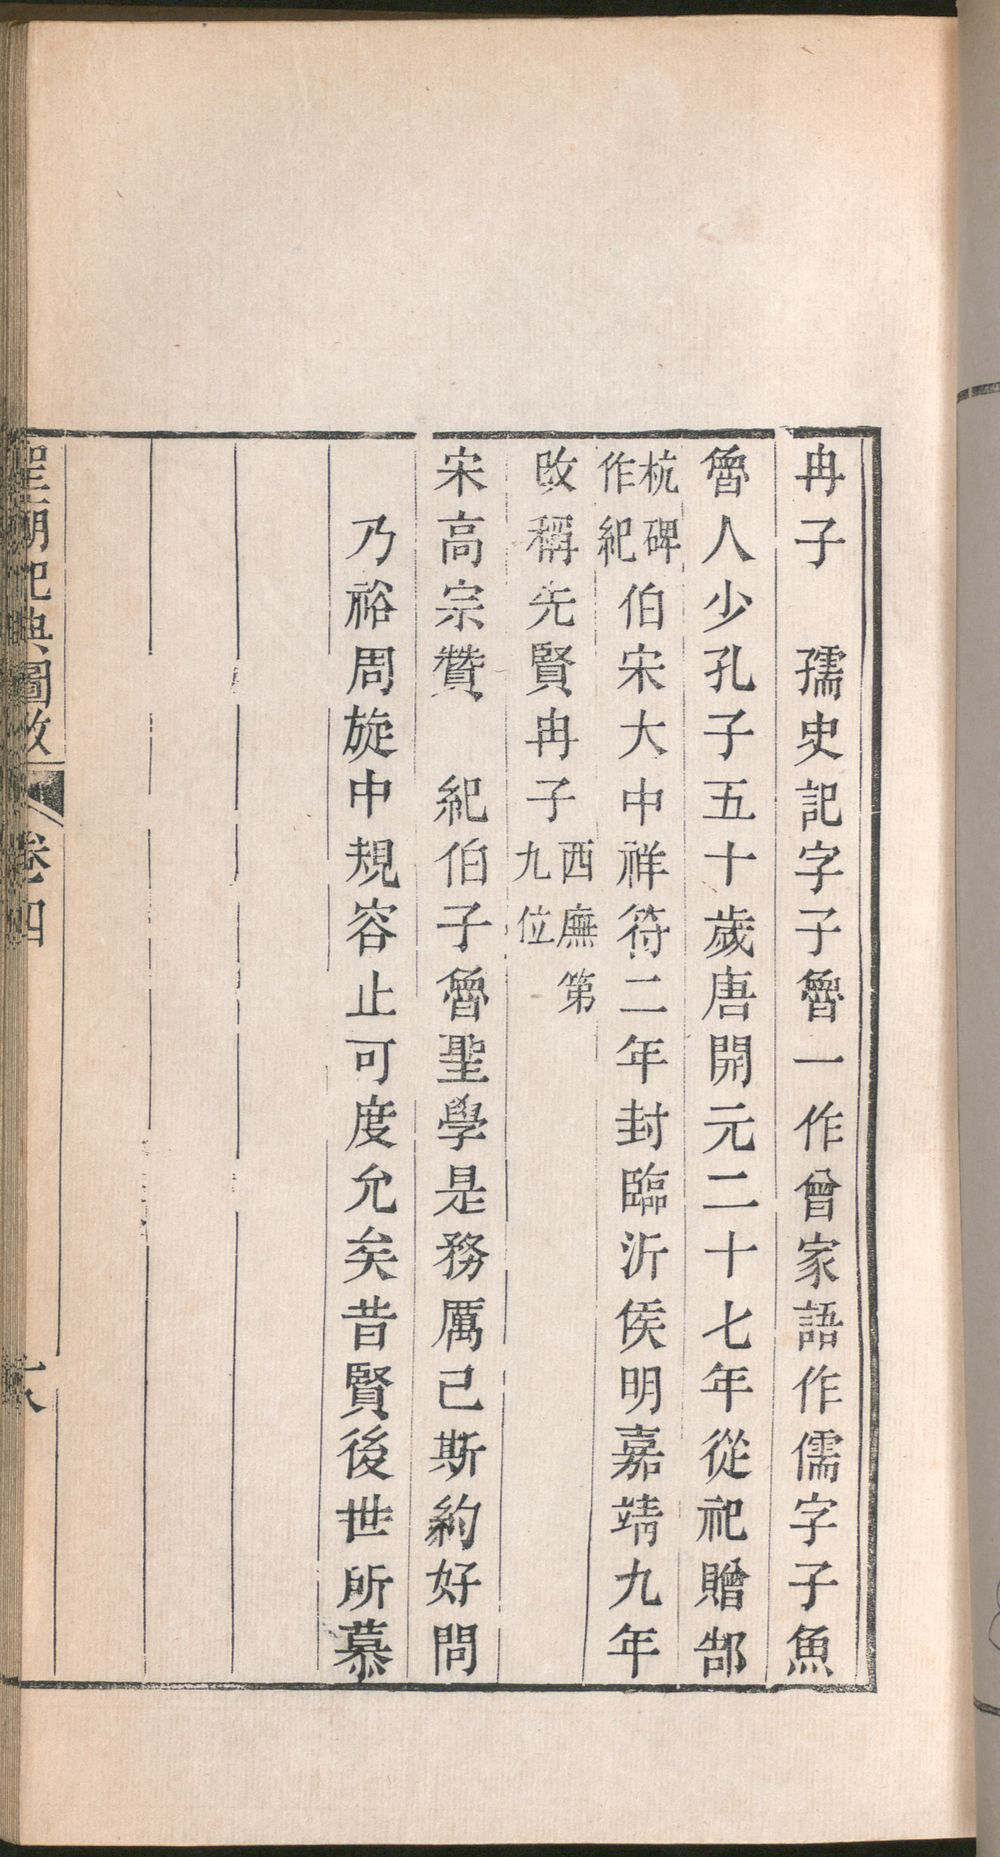 冉子　孺史記字子魯一作曾家語作儒字子魚
魯人少孔子五十歲唐開元二十七年從祀贈郜
杭碑
作紀
伯宋大中祥符二年封臨沂侯明嘉靖九年
改稱先賢冉子
西廡第
九位
宋高宗贊　紀伯子魯聖學是務厲己斯約好問
乃裕周旋中規容止可度允矣昔賢後世所慕
聖廟祀典圖攷
卷四